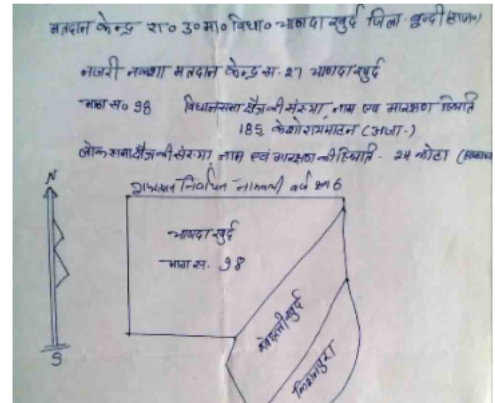 मतदान केन्द्र रा० उ० मा० विधा० भाणदा खुर्द जिला बून्दी (राज०)
नजरी नक्शा मतदान केन्द्र स. 27 भाणदा खुर्द
भाग स० 98 विधानसभा क्षेत्र की संख्या नाम एवं आरक्षण स्थिति
185 केशोरायपाटन (अजा.)
लोकसभा क्षेत्र की संख्या नाम एवं आरक्षण की स्थिति - 24 कोटा
निर्वाचन नामावली वर्ष 2016
N
भाणदा खुर्द
भाग स. 98
खुर्द
S